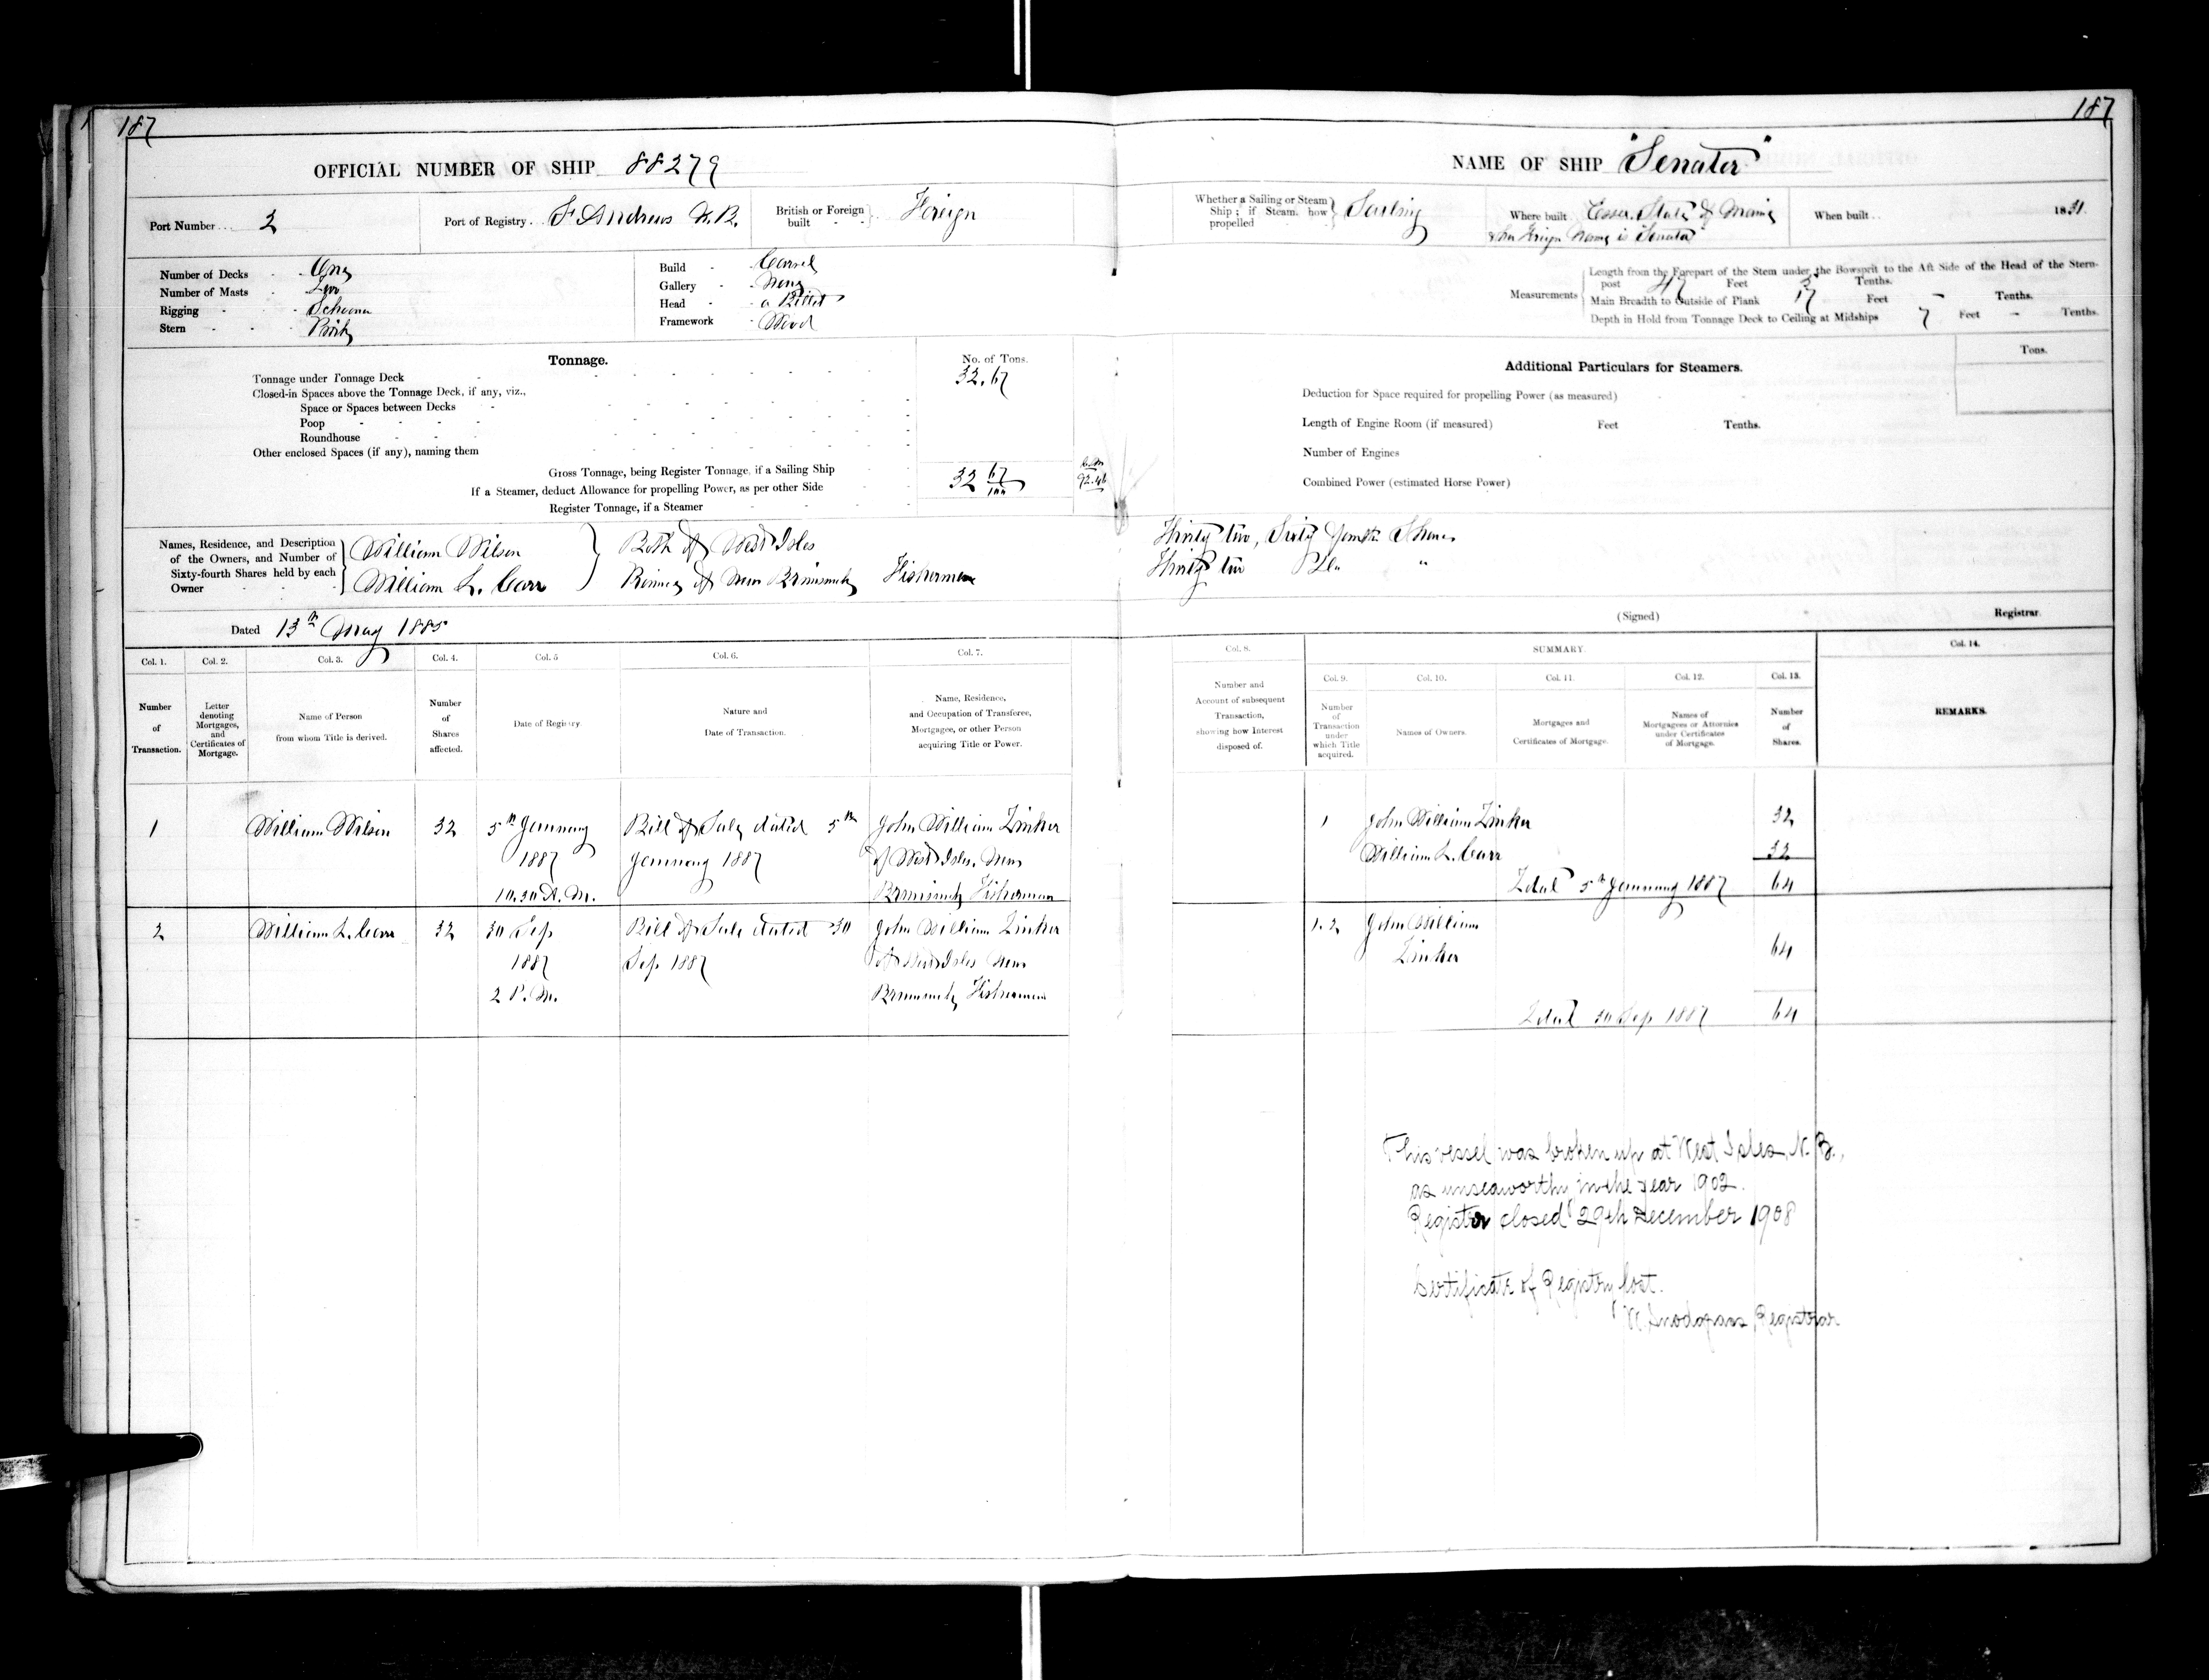 187
187
OFFICIAL NUMBER OF SHIP 88279
NAME OF SHIP "Senator"
Port Number 2
Port of Registry St Andrews N.B.
British or Foreign built Foreign
Whether a Sailing or Steam Ship; if Steam, how propelled Sailing
Where built Essex State of Maine
her Foreign Name is "Senator"
When built 1831
Number of Decks One
Number of Masts Two
Rigging Schooner
Stern
Build Carvel
Gallery None
Head a Billet
Framework Wood
Measurements
Length from the Forepart of the Stem under the Bowsprit to the Aft Side of the Head of the Stern-
post 47 Feet Tenths.
Main Breadth to Outside of Plank 17 Feet - Tenths.
Depth in Hold from Tonnage Deck to Ceiling at Midships 7 Feet - Tenths.
Tonnage.
No. of Tons.
Tonnage under Tonnage Deck 32.67
Closed-in Spaces above the Tonnage Deck, if any, viz.,
Space or Spaces between Decks
Poop
Roundhouse
Other enclosed Spaces (if any), naming them
Gross Tonnage, being Register Tonnage, if a Sailing Ship 32 67/100
92.46
If a Steamer, deduct Allowance for propelling Power, as per other Side
Register Tonnage, if a Steamer
Additional Particulars for Steamers.
Tons.
Deduction for Space required for propelling Power (as measured)
Length of Engine Room (if measured) Feet Tenths.
Number of Engines
Combined Power (estimated Horse Power)
Names, Residence, and Description
of the Owners, and Number of
Sixty-fourth Shares held by each
Owner
William Wilson
William L. Carr
Both of West Isles
Province of New Brunswick Fishermen
Thirty two, Sixty fourth Shares
Thirty two Do "
Dated 13th May 1885
(Signed) Registrar.
Col. 1. Col. 2. Col. 3. Col. 4. Col. 5 Col. 6. Col. 7.
Col. 8. SUMMARY. Col. 14.
Col. 9. Col. 10. Col. 11. Col. 12. Col. 13.
Number of Transaction.
Letter denoting Mortgages, and Certificates of Mortgage.
Name of Person from whom Title is derived.
Number of Shares affected.
Date of Registry.
Nature and Date of Transaction.
Name, Residence, and Occupation of Transferee, Mortgagee, or other Person acquiring Title or Power.
Number and Account of subsequent Transaction, showing how Interest disposed of.
Number of Transaction under which Title acquired.
Names of Owners.
Mortgages and Certificates of Mortgage.
Names of Mortgagees or Attornies under Certificates of Mortgage.
Number of Shares.
REMARKS.
1 William Wilson 32 5th January Bill of Sale dated 5th John William Zinker
1887 January 1887 of West Isles, New
10.30 A.M. Brunswick Fisherman
1 John William Zinker 32
William L. Carr 32
Total 5th January 1887 64
2 William L. Carr 32 30 Sep Bill of Sale dated 30 John William Zinker
1887 Sep 1887 of West Isles New
2 P.M. Brunswick Fisherman
1.2 John William
Zinker 64
Total 30 Sep 1887 64
This vessel was broken up at West Isles, N.B.,
as unseaworthy in the year 1902.
Register closed 29th December 1908
Certificate of Registry lost.
Registrar